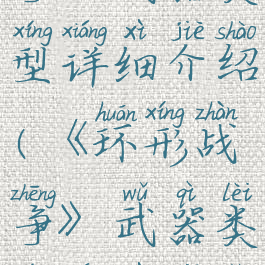 xíng xiáng xì jiè shào
型详细介绍
huán xíng zhàn
(《环形战
zhēng wǔ qì lèi
争》武器类